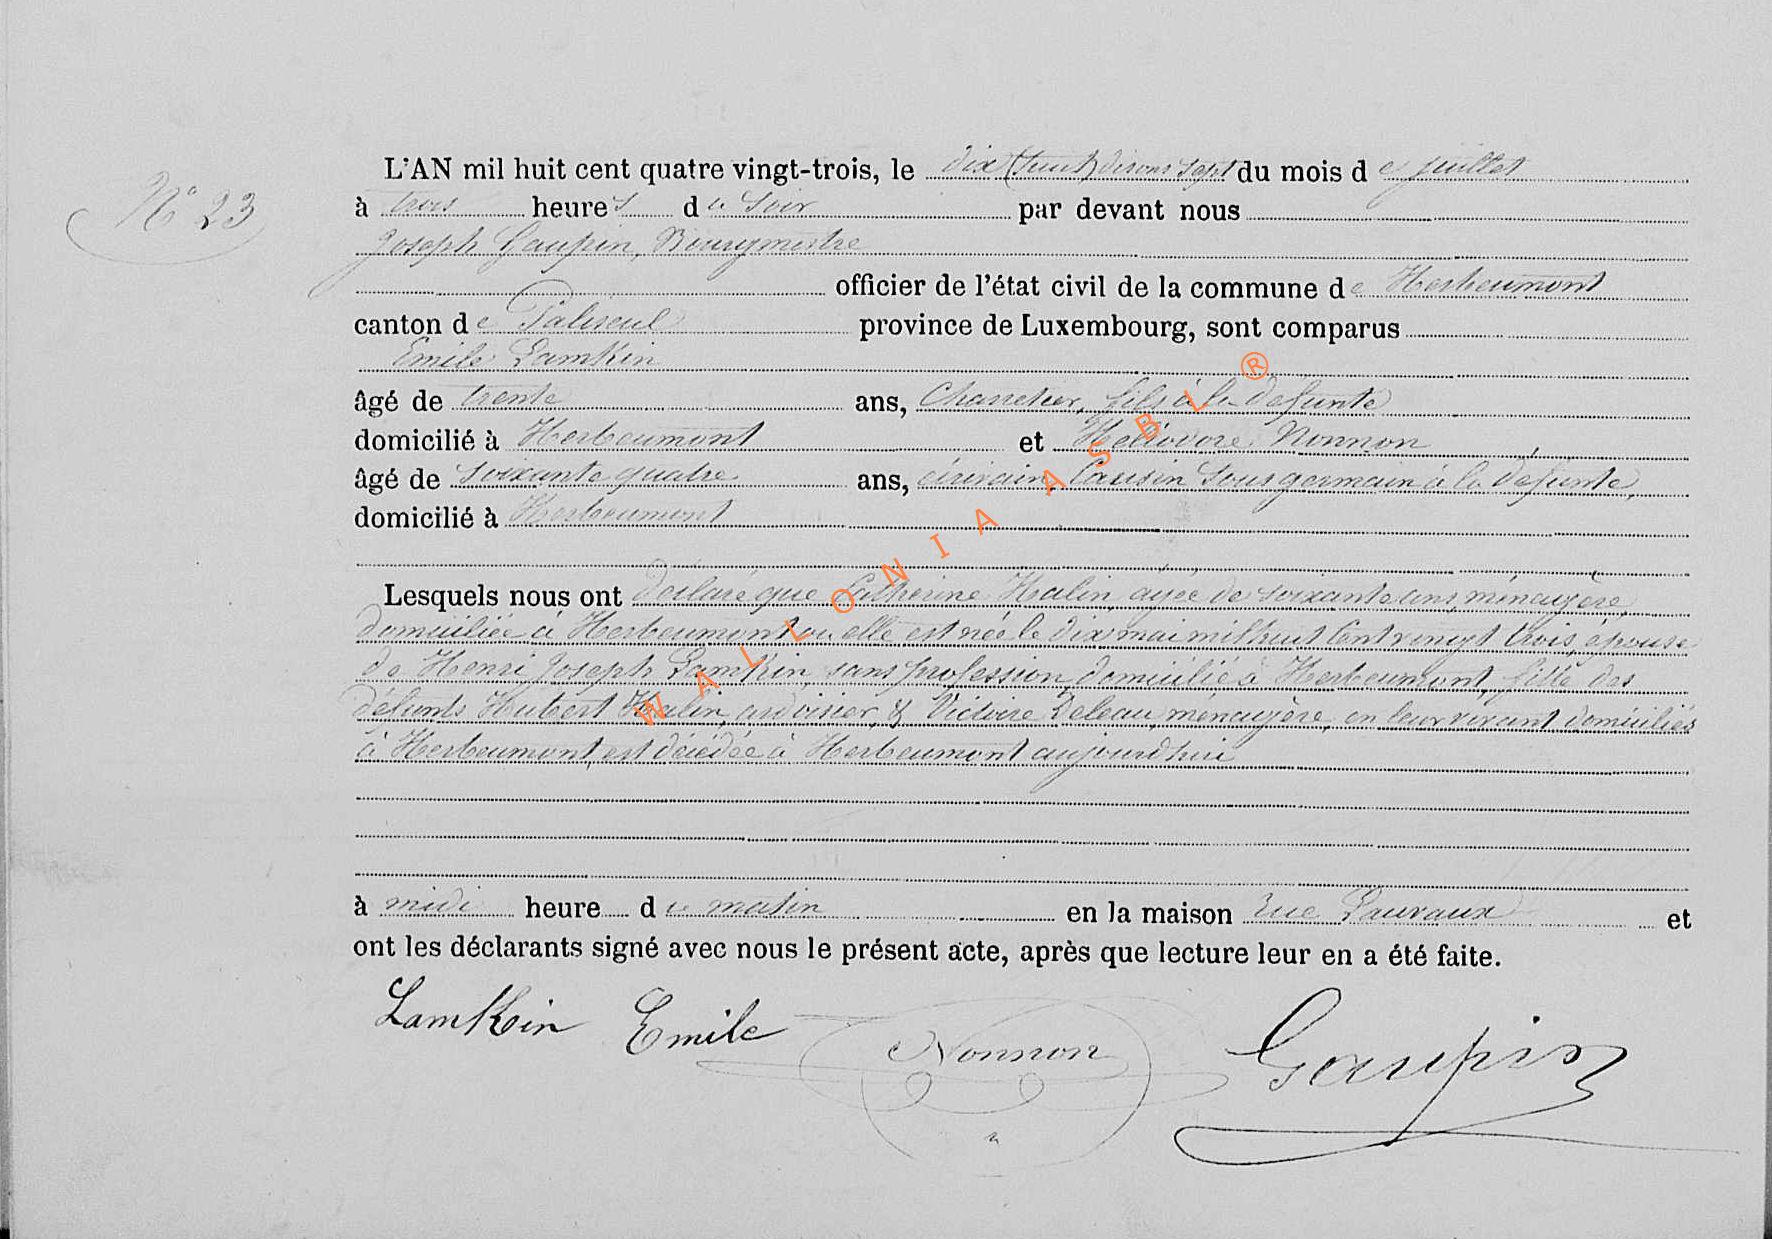 N° 23
L'AN mil huit cent quatre vingt-trois, le dix (huit) disons sept du mois de juillet
à trois heures du soir par devant nous
Joseph Gaupin, Bourgmestre
officier de l'état civil de la commune de Herbeumont
canton de Paliseul province de Luxembourg, sont comparus
Emile Lamkin
âgé de trente ans, Charretier, fils à la défunte
domicilié à Herbeumont et Héliodore Nonnon
âgé de soixante quatre ans, écrivain, Cousin sous germain à la défunte,
domicilié à Herbeumont
Lesquels nous ont déclaré que Catherine Halin, agée de soixante ans, ménagère,
domiciliée à Herbeumont ou elle est née le dix mai mil huit cent vingt trois, épouse
de Henri Joseph Lamkin, sans profession, domicilié à Herbeumont, fille des
défunts Hubert Halin, ardoisier, & Victoire Deleau, ménagère, en leur vivant domiciliés
à Herbeumont, est décédée à Herbeumont aujourd'hui
à midi heure du matin en la maison rue Lauvaux et
ont les déclarants signé avec nous le présent acte, après que lecture leur en a été faite.
Lamkin Emile Nonnon Gaupin
WALLONIA ASBL ®